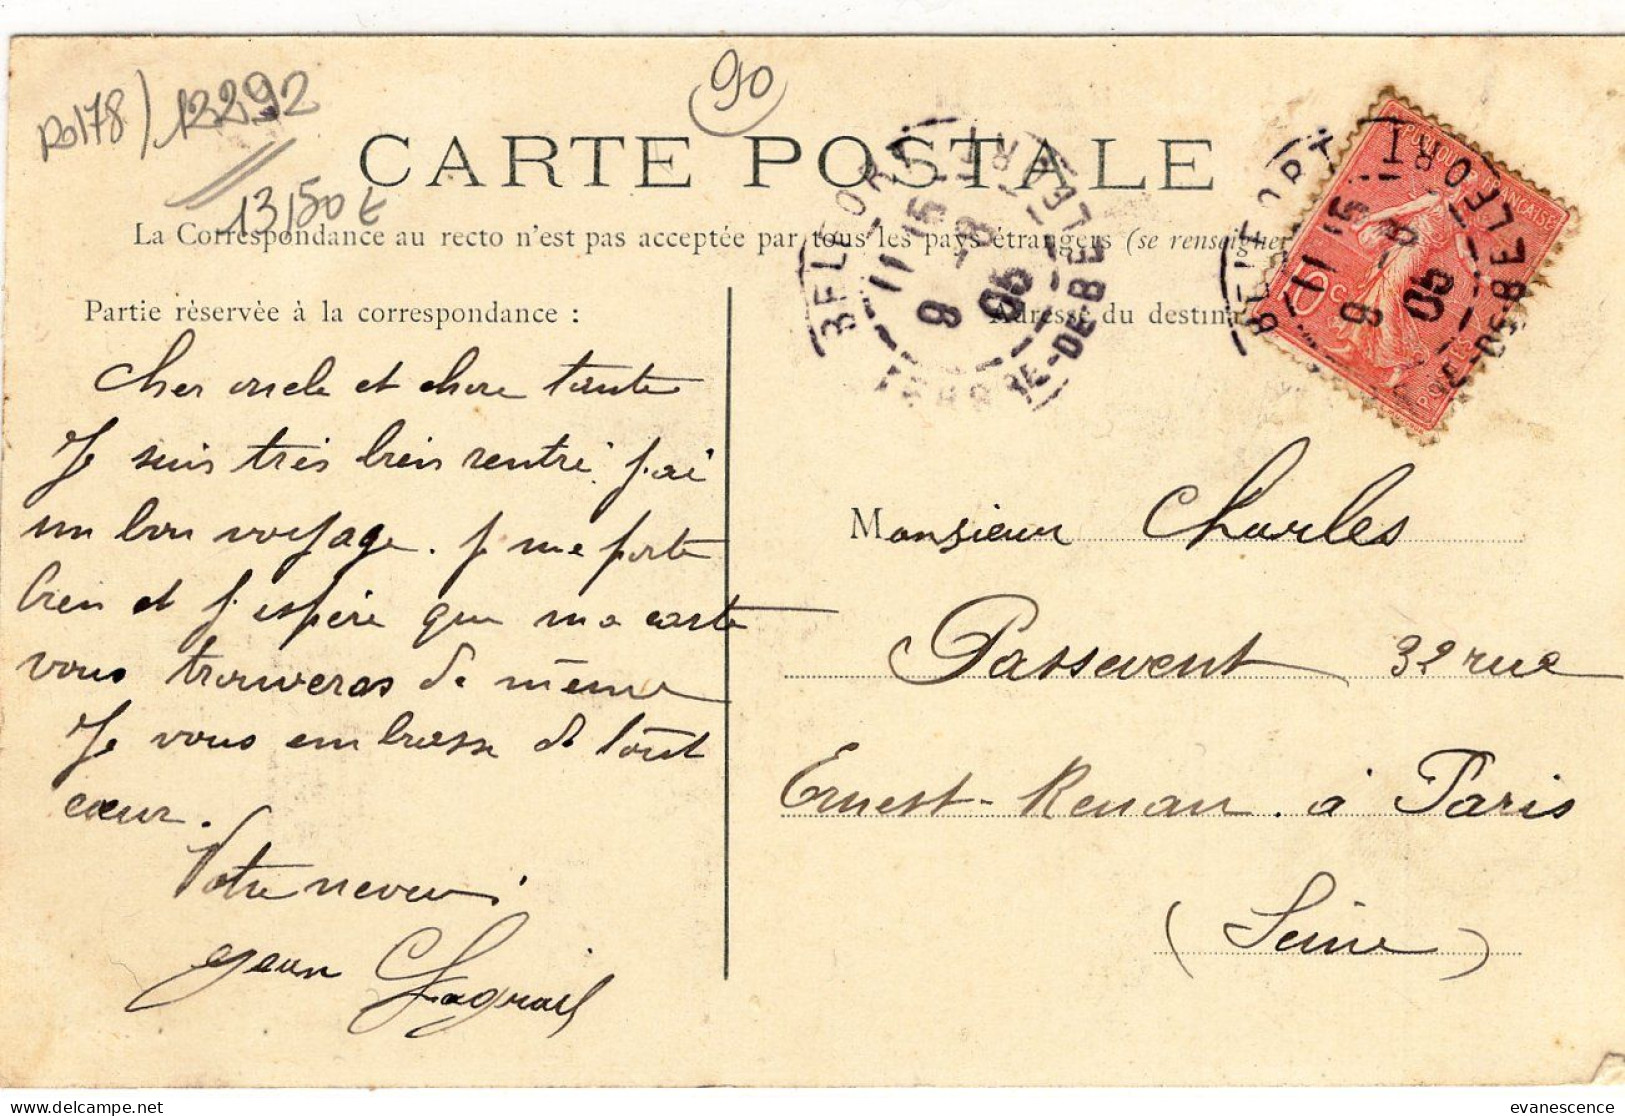 Ro178) 12292
13,50 €
90
CARTE POSTALE
La Correspondance au recto n'est pas acceptée par tous les pays étrangers (se renseigner
Partie rèservèe à la correspondance :
Cher oncle et chere tante
Je suis très bien rentré. j'ai
un bon voyage. je me porte
bien et j'espère que ma carte
vous trouveras de même
Je vous embrasse de tout
cœur.
Votre neveu.
Jean
BELFORT
11 15
9 - 8
05
RE-DE-BELFORT
Adresse du destina
REPUBLIQUE FRANÇAISE
10 C
POSTES
BELFORT
11 15
9 - 8
05
RE-DE-BELFORT
Monsieur Charles
Passevent 32 rue
Ernest-Renan. à Paris
(Seine)
evanescence